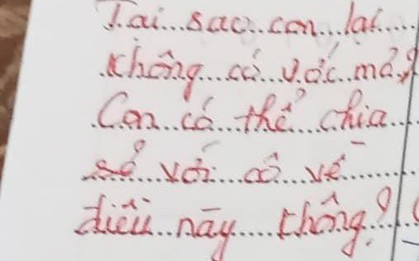 Tại sao con lại
không có ước mơ?
Con có thể chia
sẻ với cô về
điều này không?